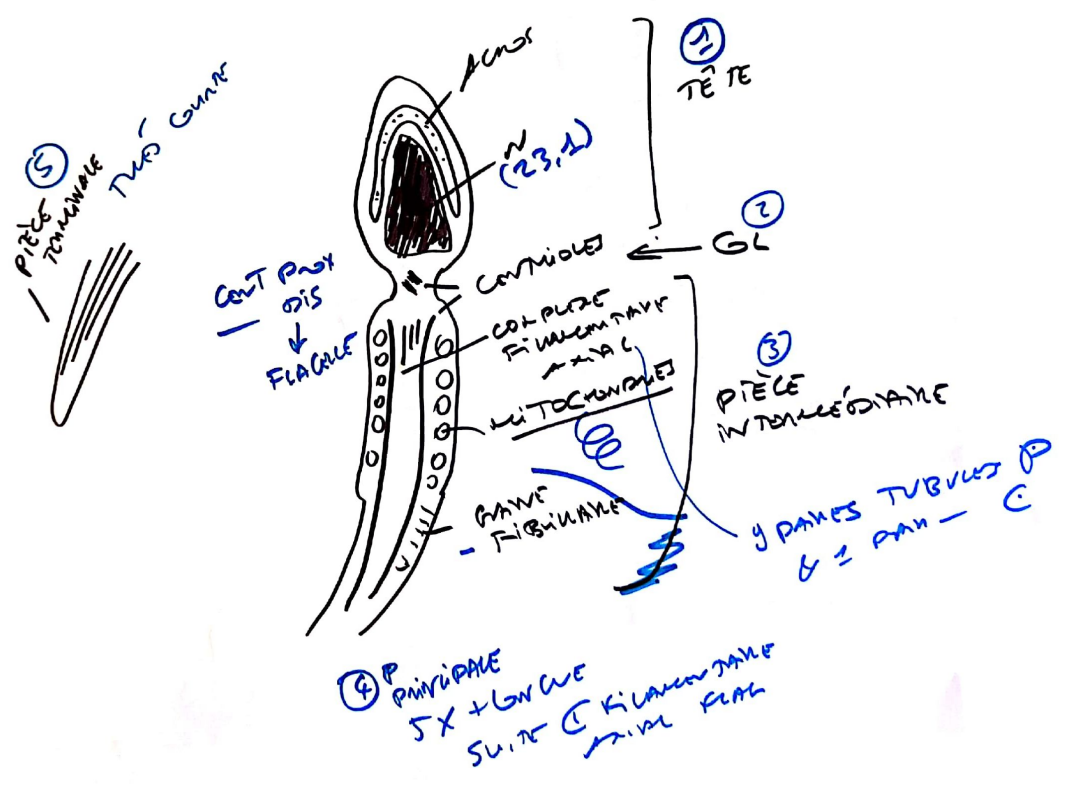 1
TÊTE
ACROS
N
(23,1)
2
COL
5
PIÈCE
TERMINALE
TRÈS COURTE
CENTRIOLES
CENT PROX
DIS
↓
FLAGELLE
COMPLEXE
FILAMENTAIRE
AXIAL
MITOCHONDRIES
3
PIÈCE
INTERMÉDIAIRE
GAINE
FIBRILLAIRE
9 PAIRES TUBULES P
& 1 PAIR — C
4 P
PRINCIPALE
5X + LONGUE
SUITE C FILAMENTAIRE
AXIAL FLAG